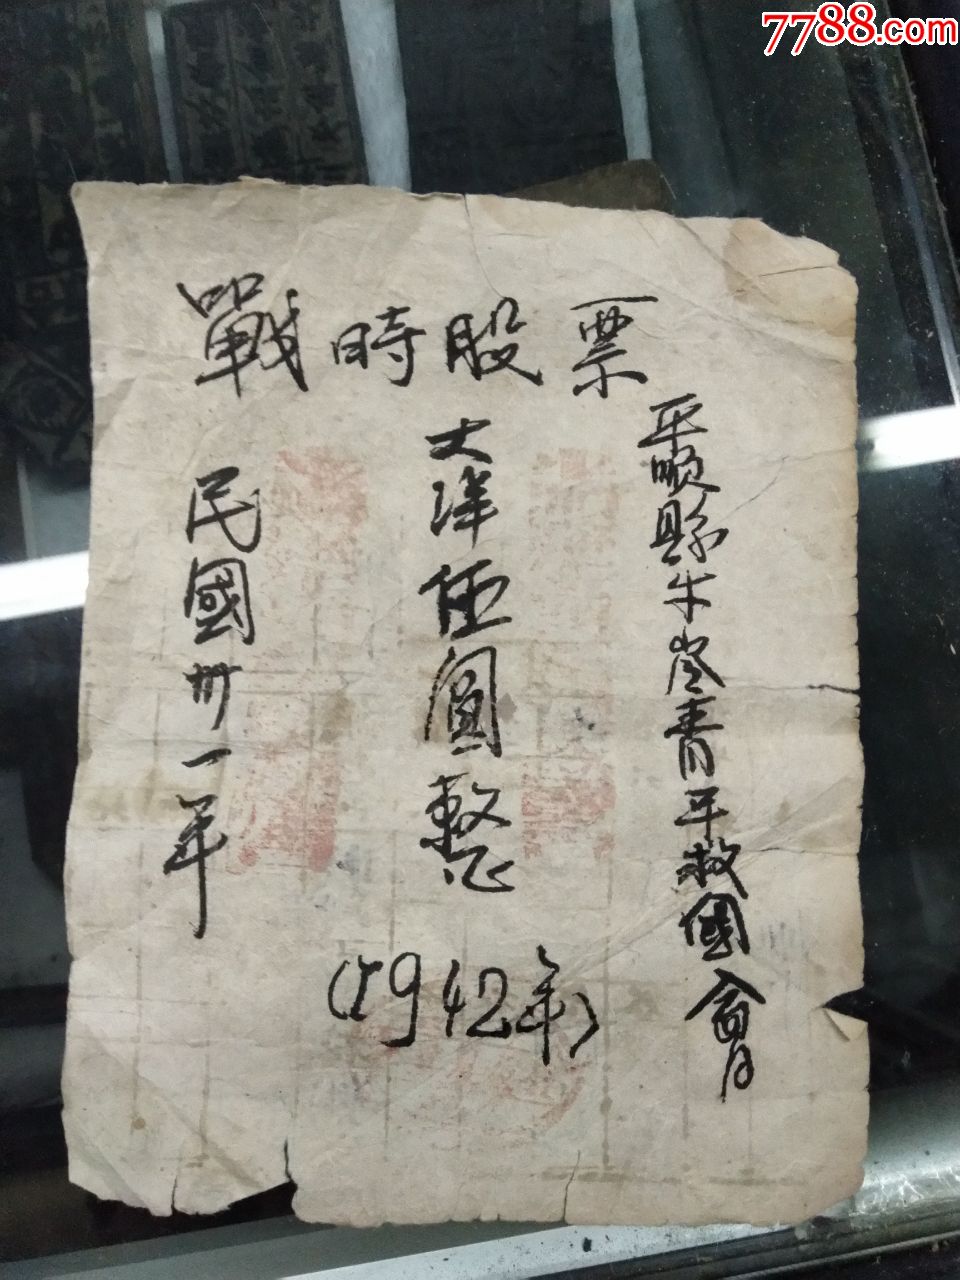 7788.com
戰時股票
平順縣牛岺青年救國會
大洋伍圓整
民國卅一年
(1942年)